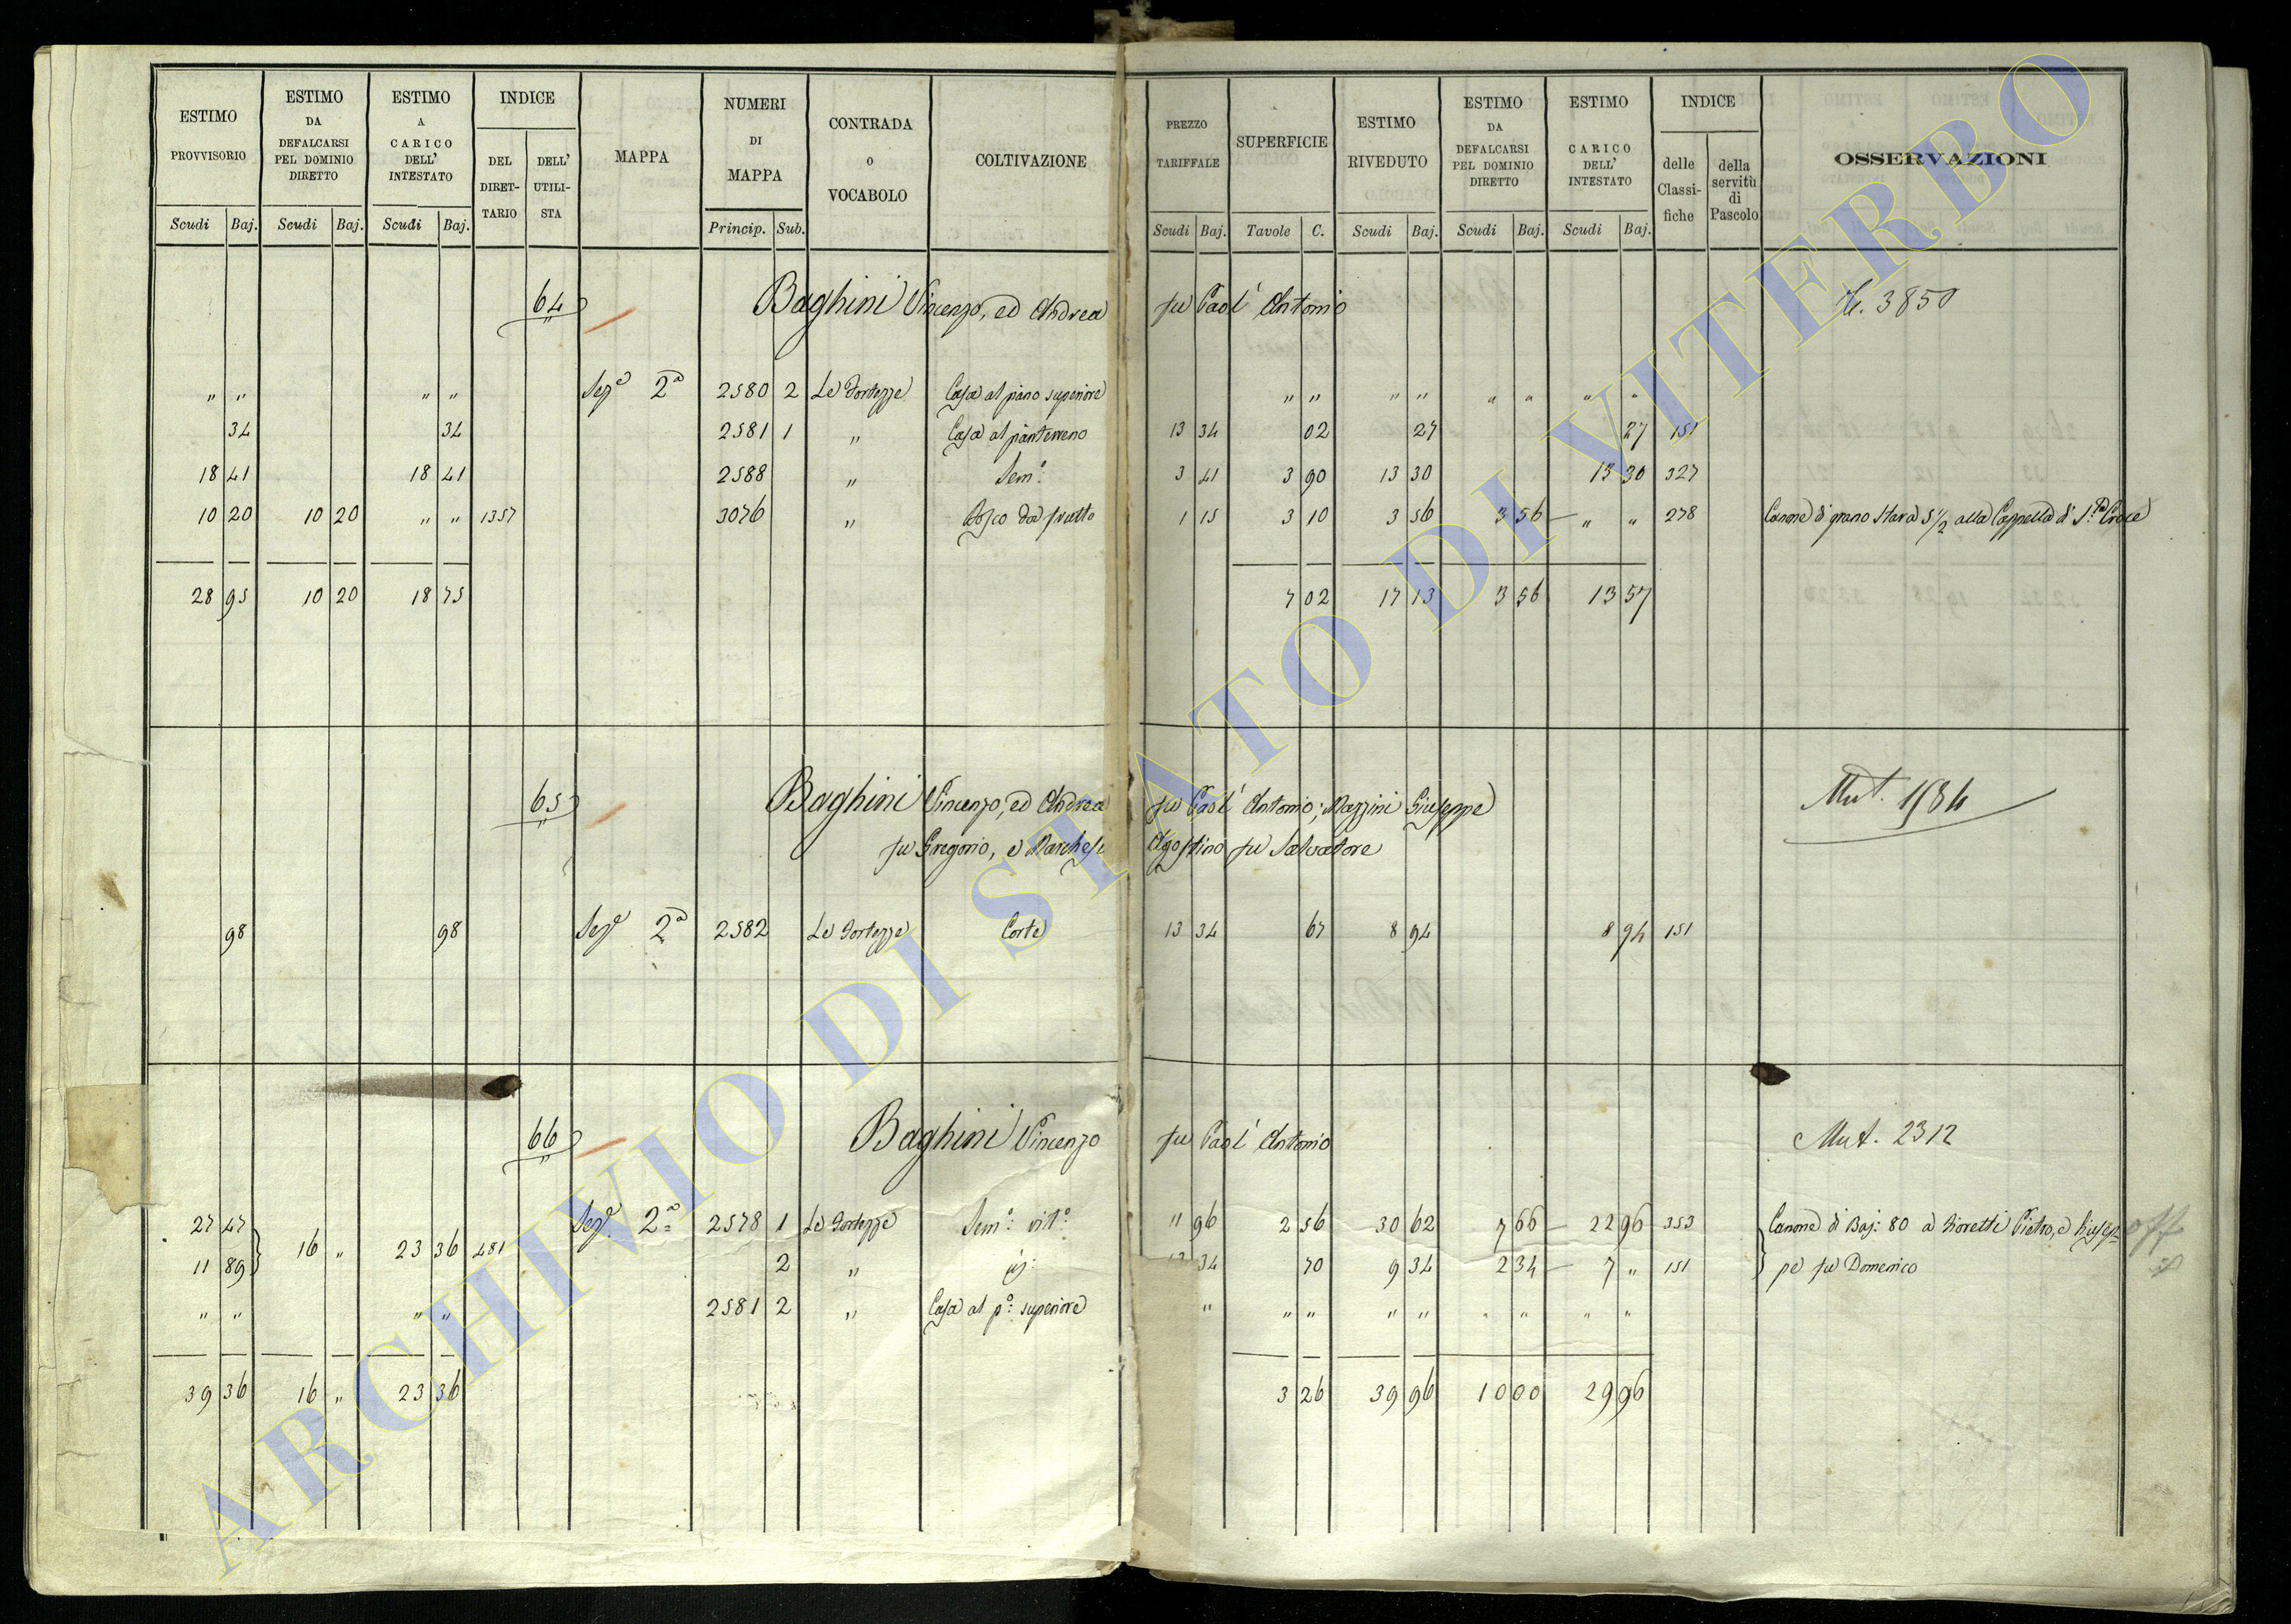 ESTIMO PROVVISORIO | ESTIMO DA DEFALCARSI PEL DOMINIO DIRETTO | ESTIMO A CARICO DELL' INTESTATO | INDICE | MAPPA | NUMERI DI MAPPA | CONTRADA O VOCABOLO | COLTIVAZIONE | PREZZO TARIFFALE | SUPERFICIE | ESTIMO RIVEDUTO | ESTIMO DA DEFALCARSI PEL DOMINIO DIRETTO | ESTIMO A CARICO DELL' INTESTATO | INDICE | OSSERVAZIONI
DEL DIRETTARIO | DELL' UTILISTA | delle Classifiche | della servitù di Pascolo
Scudi Baj. | Scudi Baj. | Scudi Baj. | Princip. Sub. | Scudi Baj. | Tavole C. | Scudi Baj. | Scudi Baj. | Scudi Baj.
64 Baghini Vincenzo, ed Andrea fu Paol' Antonio 3850
" " " " Sez.e 2a 2580 2 Le Fortezze Casa al piano superiore " " " " " " " "
34 34 2581 1 " Casa al pianterreno 13 34 02 27 27 151
18 41 18 41 2588 " Sem.o 3 41 3 90 13 30 13 30 327
10 20 10 20 " " 1357 3076 " Bosco da frutto 1 15 3 10 3 56 3 56 — " " 278 Canone di grano Stara 5 1/2 alla Cappella di S.ta Croce
28 95 10 20 18 75 7 02 17 13 3 56 13 57
65 Baghini Vincenzo, ed Andrea fu Paol' Antonio; Mazzini Giuseppe Mut. 1584
fu Gregorio, e Marchesi Agostino fu Salvatore
98 98 Sez.e 2a 2582 Le Fortezze Corte 13 34 67 8 94 8 94 151
66 Baghini Vincenzo fu Paol' Antonio Mut. 2312
27 47 Sez.e 2a 2578 1 Le Fortezze Sem.o vit.o 11 96 2 56 30 62 7 66 — 22 96 353 Canone di Baj. 80 a Fioretti Pietro, e Giusep=
11 89 16 " 23 36 481 2 " id: 13 34 70 9 34 2 34 — 7 " 151 pe fu Domenico
" " " " 2581 2 " Casa al p.o superiore " " " " " " " " "
39 36 16 " 23 36 3 26 39 96 10 00 29 96
ARCHIVIO DI STATO DI VITERBO